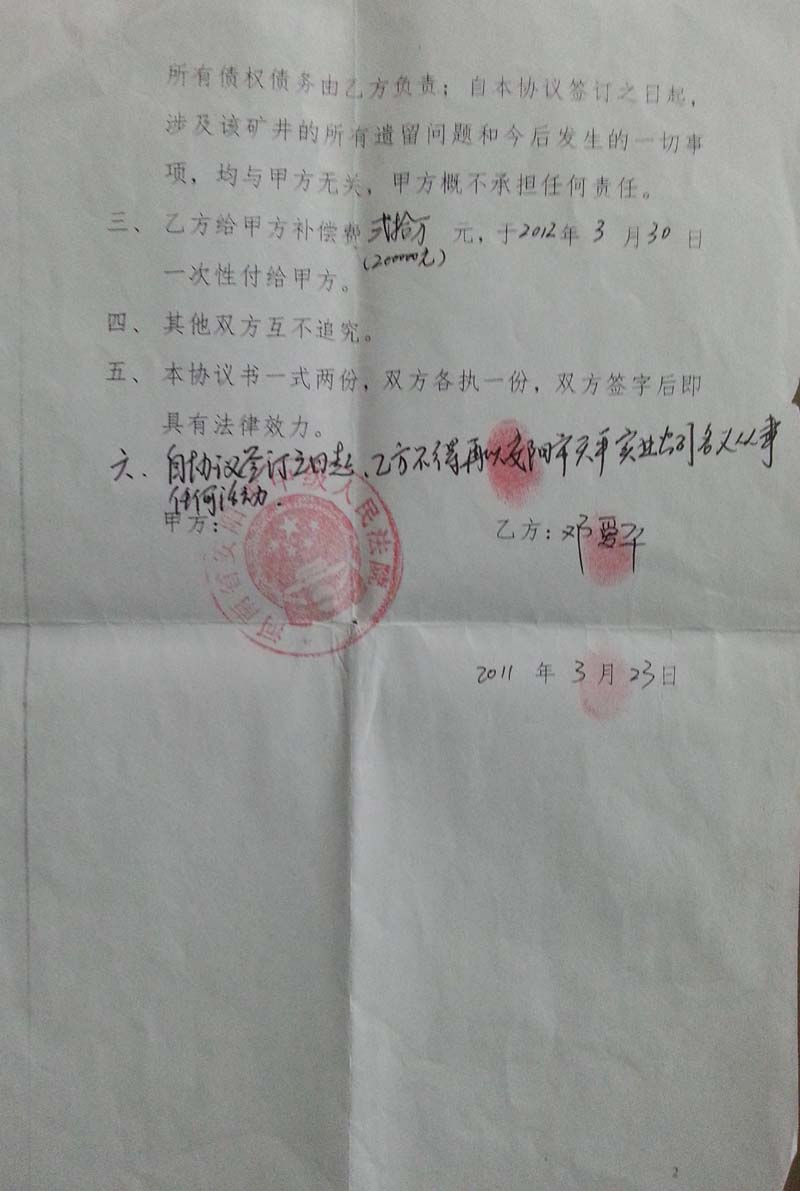 所有债权债务由乙方负责；自本协议签订之日起，
涉及该矿井的所有遗留问题和今后发生的一切事
项，均与甲方无关，甲方概不承担任何责任。
三、乙方给甲方补偿费贰拾万元，于2012年3月30日
(200000元)
一次性付给甲方。
四、其他双方互不追究。
五、本协议书一式两份，双方各执一份，双方签字后即
具有法律效力。
六、自协议签订之日起、乙方不得再以安阳市天平实业公司名义从事
任何活动.
甲方： 乙方：邓爱华
河南省安阳市中级人民法院
2011年3月23日
2